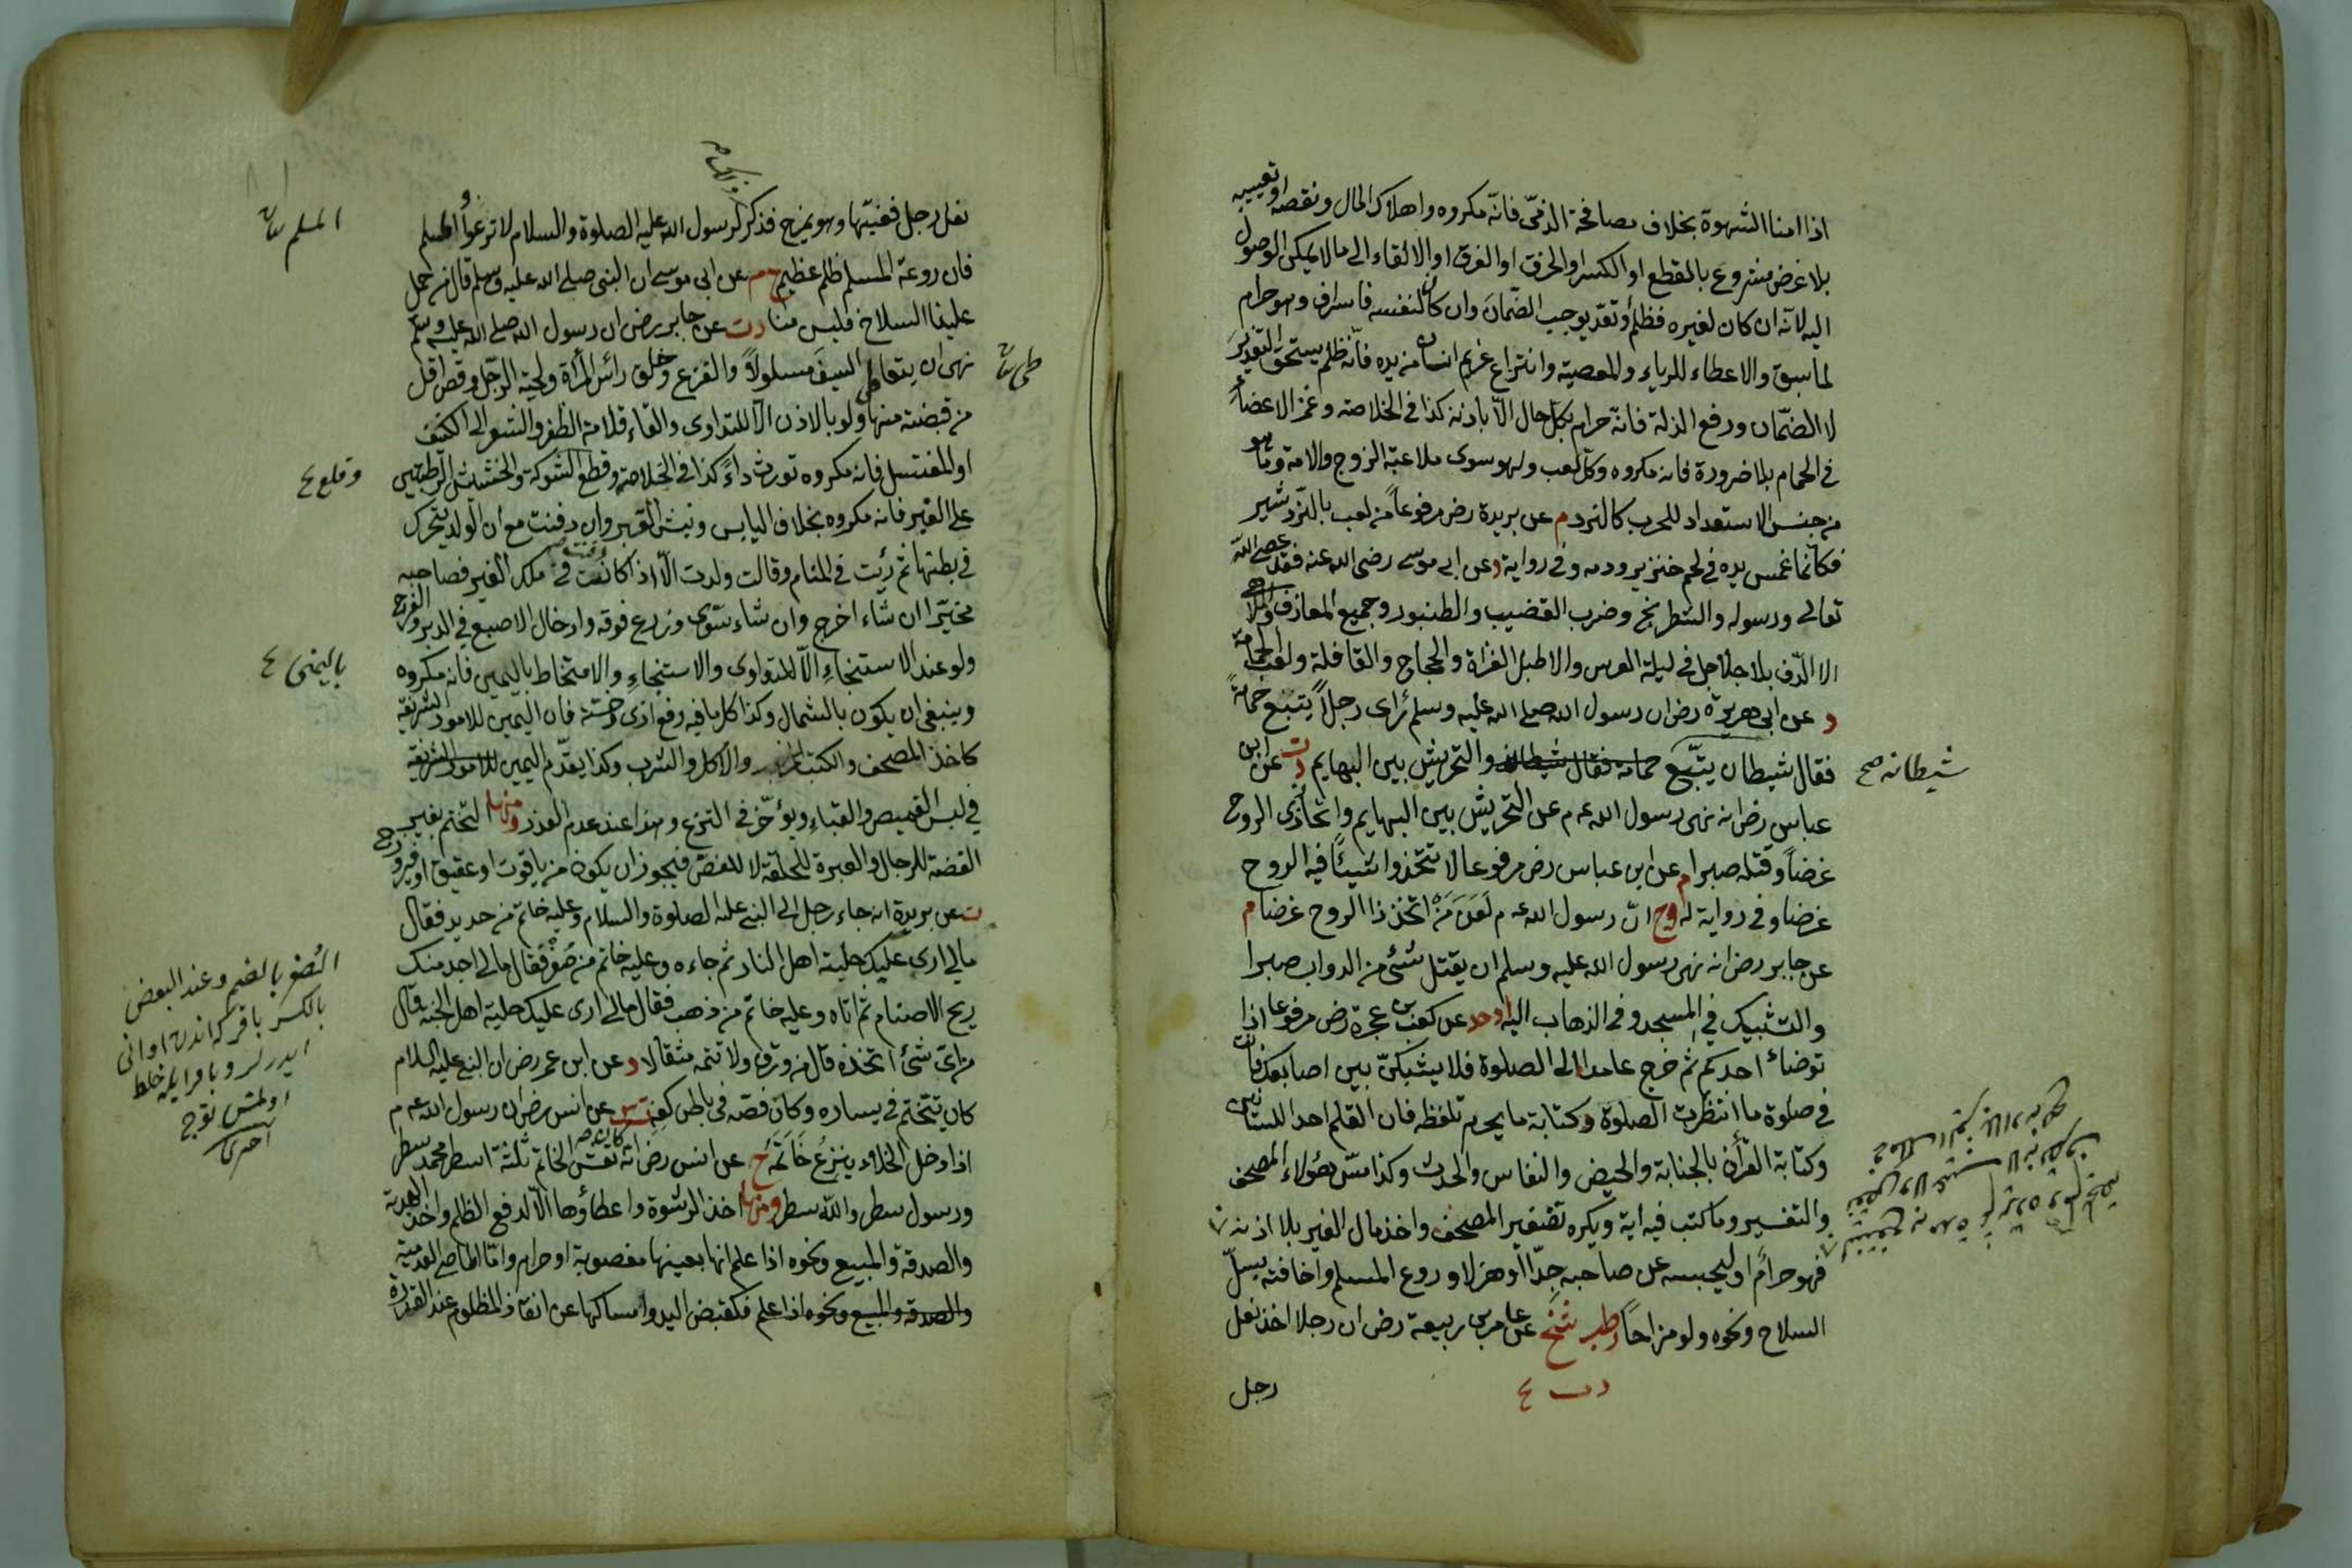 اذا امنا الشهوة بخلاف مصافحة الذمّى فانّه مكروه واهلاك المال ونقصه او تعييبه
بلا غرض مشروع بالقطع او الكسر او الحرق او الغرق او الالقاء الى مالا يمكن الوصول
اليه لانّه ان كان لغيره فظلم وتعدّ يوجب الضّمان وان كان لنفسه فاسراف وهو حرام
لما سبق والاعطاء للرياء والمعصية وانتزاع غريم انسان من يده فانّه ظلم يستحق التعذير
لا الضّمان ورفع الذلة فانّه حرام بكل حال الّا باذنه كذا فى الخلاصة وغمز الاعضاء
فى الحمام بلا ضرورة فانه مكروه وكل لعب ولهو سوى ملاعبة الزوج والامة وما هو
من جنس الاستعداد للحرب كالنرد م عن بريدة رض مرفوعاً من لعب بالنّردشير
فكانّما غمس يده فى لحم خنزير ودمه وفى رواية د عن ابى موسى رضى الله عنه فقد عصى الله
تعالى ورسوله والشطرنج وضرب القضيب والطنبور وجميع المعازف والملاهى
الا الدّف بلا جلاجل فى ليلة العرس والا طبل الغزاة والحجاج والقافلة ولعب الحمامة
د عن ابى هريرة رض ان رسول الله صلى الله عليه وسلم رأى رجلاً يتبع حمامة
فقال شيطان يتّبع حمامة فقال شيطان والتحريش بين البهايم دت عن ابن
شيطانه صح
عباس رض انه نهى رسول الله عم عن التحريش بين البهايم واتخاذ ذى الروح
غرضاً وقتله صبرا م عن ابن عباس رض مرفوعا لا تتخذوا شيئاً فيه الروح
غرضا وفى رواية له وخ انّ رسول الله عم لَعَنَ مَنْ اتخذ ذا الروح غرضا م
عن جابر رض انه نهى رسول الله عليه وسلم ان يقتل شئ من الدواب صبرا
والتشبيك فى المسجد وفى الذهاب اليه اوحد عن كعب بن عجرة رض مرفوعا اذا
توضأ احدكم ثم خرج عامدا الى الصلوة فلا يشبكنّ بين اصابعه فانه
فى صلوة ما انتظرت الصلوة وكتابة ما يحرم تلفظه فان القلم احد اللسانين
وكتابة القرأن بالجنابة والحيض والنفاس والحدث وكذا مسّ هؤلاء المصحف
والتفسير وما كتب فيه اية ويكره تصغير المصحف واخذ مال الغير بلا اذنه
فهو حرام او ليحبسه عن صاحبه جدّا او هزلا وروع المسلم واخافته بسلّ
السلاح ونحوه ولو مزاحاً طب شيخ عن عامر بن ربيعة رض ان رجلا اخذ نعل
رجل
نعل رجل فغيّبها وهو يمزح فذكر لرسول الله عليه الصلوة والسلام لا ترعوا المسلم
المسلم
فان روعة المسلم ظلم عظيم خ م عن ابى موسى ان النبى صلى الله عليه وسلم قال من حمل
علينا السلاح فليس منا دت عن جابر رض ان رسول الله صلى الله عليه وسلم
نهى ان يتعاطى السيفَ مسلولاً والقزع وحلق رأس المرأة ولحية الرجل وقص اقل
من قبضة منها ولو بالاذن الّا للتداوى والقاء قلامة الظفر والشعر الى الكنيف
او المغتسل فانه مكروه تورث داءً كذا فى الخلاصة وقطع الشوكة والحشيش الرطبين
وقلع
على القبر فانه مكروه بخلاف اليابس ونبش القبر وان دفنت مع ان الولد يتحرك
فى بطنها ثم رئيت فى المنام وقالت ولدت الّا اذا كانت دفنت فى ملك الغير فصاحبه
مخيّر ان شاء اخرج وان شاء سوّى وزرع فوقه وادخال الاصبع فى الدبر والفرج
ولو عند الاستنجاء الّا للتداوى والاستنجاء والامتخاط باليمين فانه مكروه
باليمنى
وينبغى ان يكون بالشمال وكذا كل ما فيه رفع اذى وخسة فان اليمين للامور الشريفة
كاخذ المصحف والكتب والاكل والشرب وكذا يقدّم اليمين للامور الشريفة
فى لبس القميص والقباء ويؤخّر فى النزع وهذا عند عدم العذر ومنها التختم بغير
الفضة للرجال والعبرة للحلقة لا للفص فيجوز ان يكون من ياقوت او عقيق او فيروزج
ت عن بريدة انه جاء رجل الى النبى عليه الصلوة والسلام وعليه خاتم من حديد فقال
مالى ارى عليك حلية اهل النار ثم جاءه وعليه خاتم من صُفْر فقال مالى اجد منك
ريح الاصنام ثم اتاه وعليه خاتم من ذهب فقال مالى ارى عليك حلية اهل الجنة قال
من اىّ شئ اتخذه قال من ورق ولا تتمه مثقالا د عن ابن عمر رض ان النبى عليه السلام
كان يتختم فى يساره وكان فصّه فى باطن كفه ت س عن انس رض ان رسول الله عم
اذا دخل الخلاء ينزع خَاتَمَهُ خ عن انس رض انّه كان نقش الخاتم ثلثة اسطر محمد سطر
ورسول سطر والله سطر ومنها اخذ الرشوة واعطاؤها الّا لدفع الظلم واخذ الهدية
والصدقة والمبيع ونحوه اذا علم انها بعينها مغصوبة او حرام
والصدقة والمبيع ونحوه اذا علم فكقبض اليد وامساكها عن انقاذ المظلوم عند القدرة
الصفر بالضم وعند البعض
بالكسر باقر كه اندن اوانى
ايدرلر وباقر ايله خلط
اولمش توج